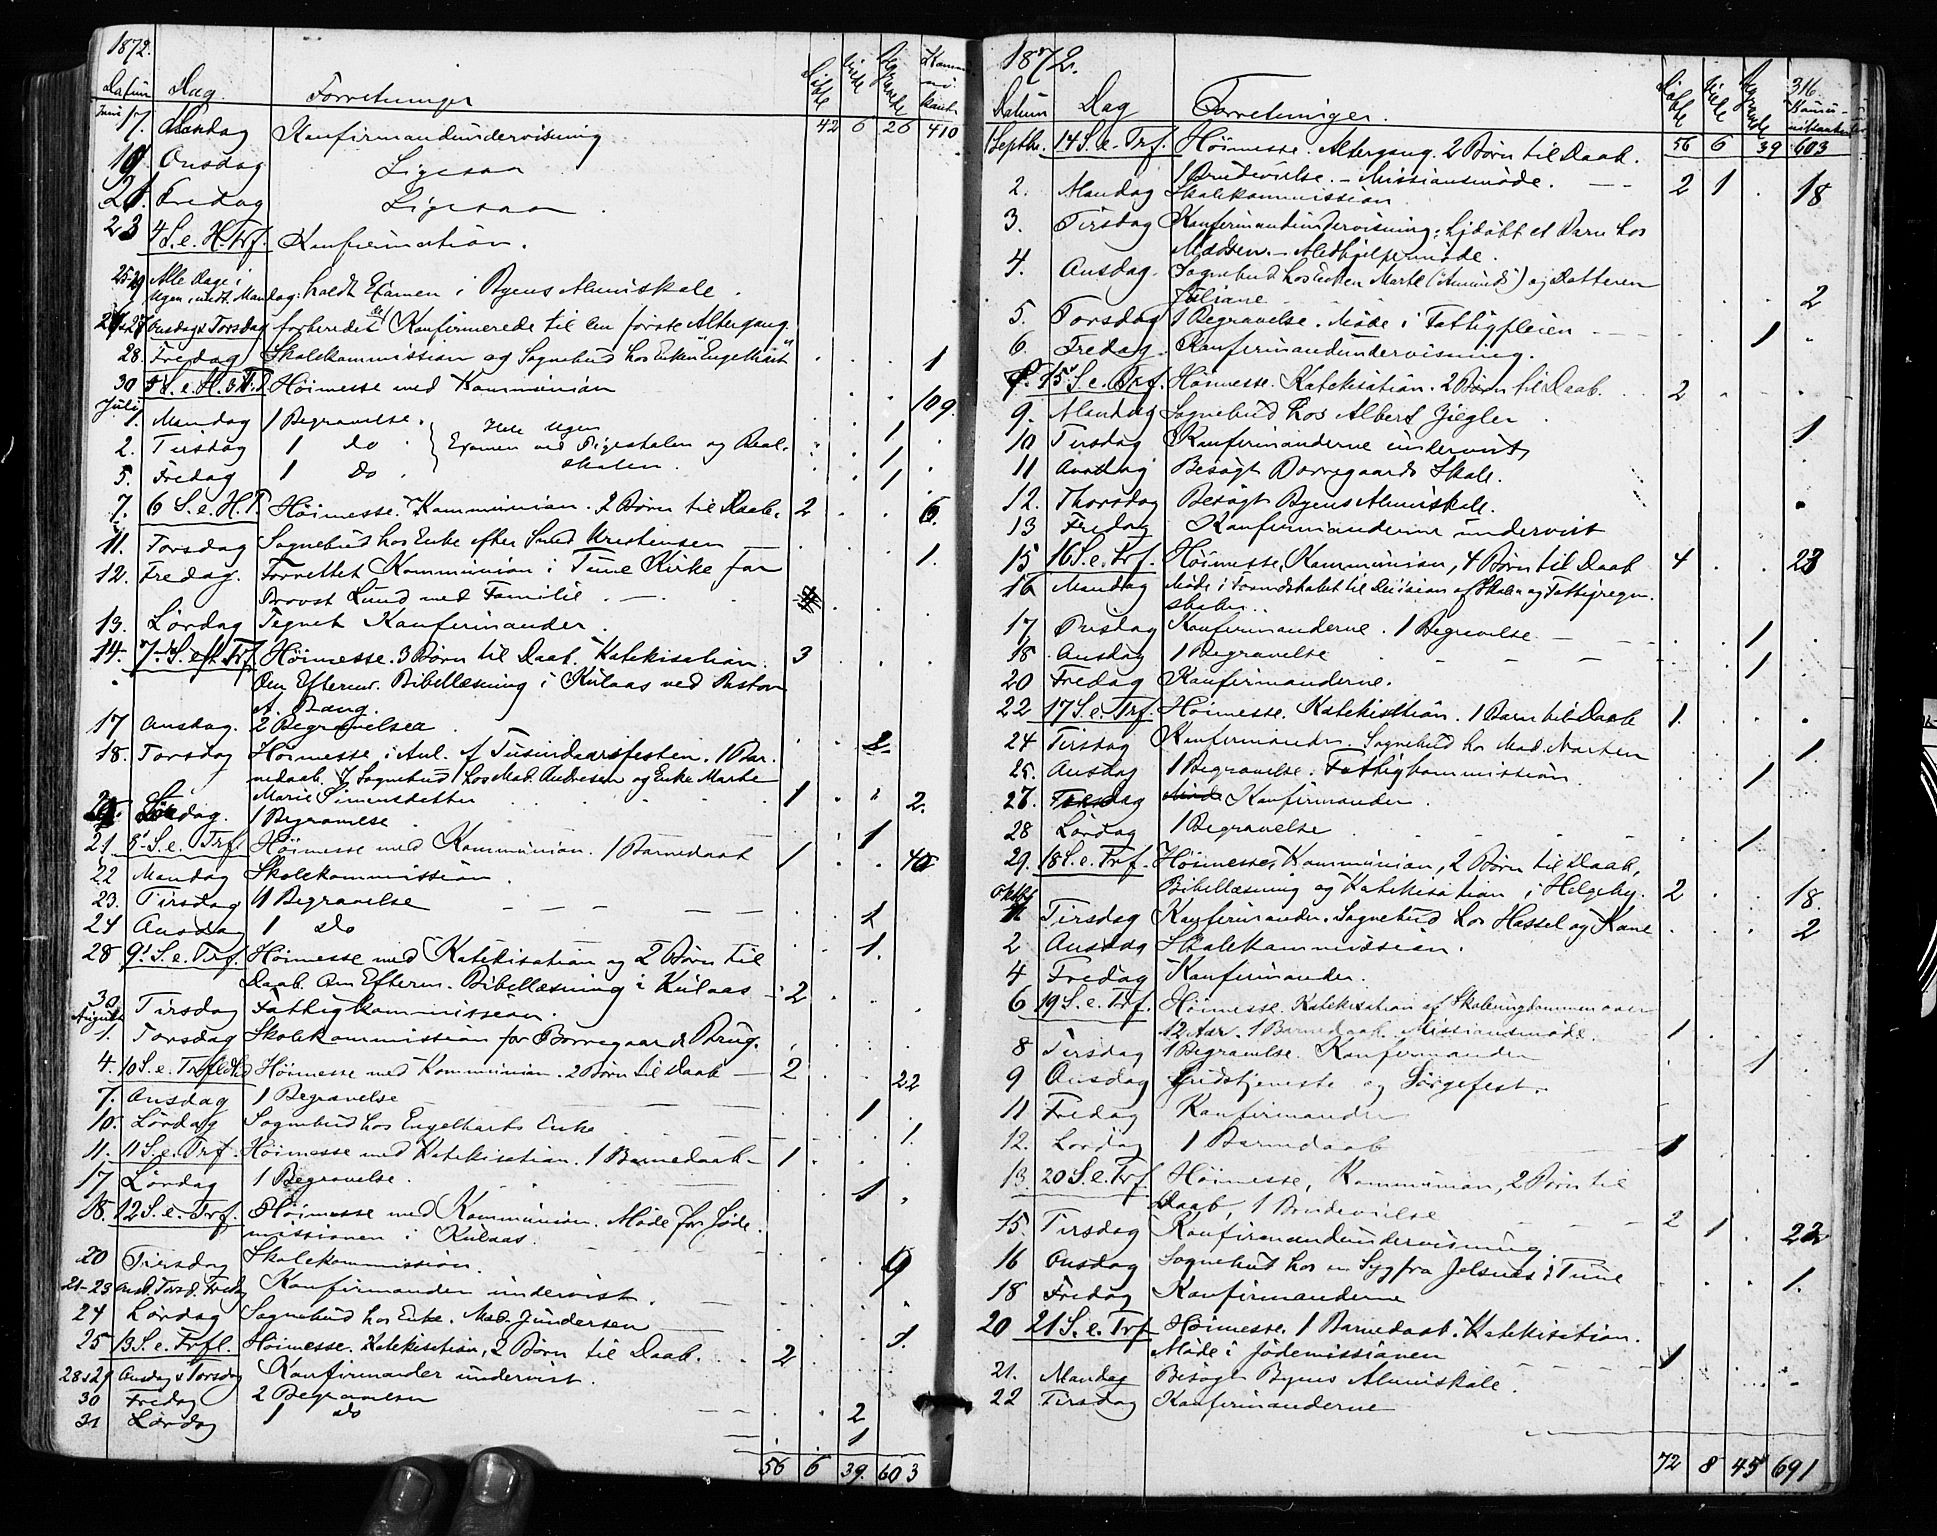 1872.
Datum Dag. Forretninger Döbte Viede Begravede Kommunikanter
Juni 17. Mandag Konfirmandundervisning 42 6 26 410
19. Onsdag Ligesaa
21. Fredag Ligesaa.
23 4 S. e. H. Trf. Konfirmation.
25-29 Alle Dage i
Ugen, undt. Mandag: holdt Examen i Byens Almuskole.
26-27 Onsdag & Torsdag forberedet de Konfirmerede til den förste Altergang.
28. Fredag Skolekommission og Sognebud hos Enken Engelhart 1
30 5 S. e. H. 3 T. Höimesse med Kommunion 109.
Juli 1. Mandag 1 Begravelse. Hele Ugen 1
2. Tirsdag 1 do Examen ved Pigeskolen og Real- 1
5. Fredag 1 do. skolen. 1
7. 6 S. e. H. T. Höimesse. Kommunion. 2 Börn til Daab. 2 6.
11. Torsdag Sognebud hos Enke efter Svend Kristensen 1.
12. Fredag. Forrettet Kommunion i Tune Kirke for
Provst Lund med Familie.
13. Lördag Tegnet Konfirmander.
14. 7. S. eft. Trf. Höimesse. 3 Börn til Daab. Katekisation. 3
Om Efterm. Bibellæsning i Kulaas ved Pastor
A. Bang.
17 Onsdag. 2 Begravelser 2.
18. Torsdag Höimesse i Anl. af Tusindaarsfesten. 1 Bar-
nedaab. Sognebud hos Mad. Andresen og Enke Marte
Marie Simensdatter 1 2.
Lördag. 1 Begravelse 1
21. 8 S. e. Trf. Höimesse med Kommunion. 1 Barnedaab 1 40
22 Mandag Skolekommission.
23. Tirsdag 1 Begravelse 1
24 Onsdag 1 do 1.
28 9 S. e. Trf. Höimesse med Katekisation og 2 Börn til
Daab. Om Efterm. Bibellæsning i Kulaas 2
30 Tirsdag Fattigkommission.
August 1. Torsdag Skolekommission for Borregaard Brug.
4. 10 S. e. Trf. Höimesse med Kommunion. 2 Börn til Daab 2 22
7. Onsdag 1 Begravelse 1.
10. Lördag Sognebud hos Engelharts Enke 1.
11. 11 S. e. Trf. Höimesse med Katekisation. 1 Barnedaab 1
17 Lördag 1 Begravelse. 1
18. 12 S. e. Trf. Höimesse med Kommunion. Möde for Jöde-
missionen i Kulaas. 9
20 Tirsdag Skolekommission.
21-23 Onsd. Torsd. Fredag Konfirmander undervist.
24 Lördag Sognebud hos Enke. Mad. Gundersen 1.
25 13 S. e. Trfl. Höimesse. Katekisation, 2 Börn til Daab. 2
28 & 29 Onsdag & Torsdag Konfirmander undervist.
30 Fredag 2 Begravelser 2
31 Lördag 1 do 1
56 6 39. 603
1872.
316
Datum Dag Forretninger. Döbte Viede Begravede Kommunikanter
1 Septbr. 14 S. e. Trf. Höimesse. Altergang. 2 Börn til Daab. 56 6 39 603
1 Brudevielse. - Missionsmöde. 2 1 18
2. Mandag Skolekommission
3. Tirsdag Konfirmandundervisning; hjdöbt et Barn hos
Madsen. - Medhjelpermöde.
4. Onsdag. Sognebud hos Enken Marte (Amunds) og Datteren
Juliane 2
5. Torsdag 1 Begravelse. Möde i Fattigpleien 1
6. Fredag Konfirmandundervisning.
8. 15 S. e. Trf. Höimesse. Katekisation. 2 Börn til Daab. 2
9. Mandag Sognebud hos Albert Ziegler 1
10. Tirsdag Konfirmanderne undervist
11 Onsdag Besögt Borregaards Skole.
12. Thorsdag Besögt Byens Almuskole.
13 Fredag Konfirmanderne undervist
15 16 S. e. Trf. Höimesse, Kommunion, 4 Börn til Daab 4 23
16 Mandag Möde i Formandskabet til Decision af Skole- og Fattigregn-
skaber.
17 Tirsdag Konfirmanderne. 1 Begravelse 1
18 Onsdag 1 Begravelse 1
20 Fredag Konfirmanderne.
22 17 S. e. Trf. Höimesse. Katekisation. 1 Barn til Daab 1.
24 Tirsdag Konfirmander. Sognebud hos Mad. Narten 1
25. Onsdag 1 Begravelse. Fattigkommission 1
27. Fredag Konfirmander.
28 Lördag 1 Begravelse 1
29. 18 S. e. Trf. Höimesse, Kommunion, 2 Börn til Daab,
Bibellæsning og Katekisation i Helgeby. 2 18.
Oktbr 1. Tirsdag Konfirmander. Sognebud hos Hassel og Kone 2
2 Onsdag Skolekommission.
4 Fredag Konfirmander.
6 19 S. e. Trf. Höimesse. Katekisation af Skoleungdommen over
12 Aar. 1 Barnedaab. Missionsmöde. 1
8 Tirsdag 1 Begravelse. Konfirmander 1
9 Onsdag Gudstjeneste og Sörgefest.
11 Fredag Konfirmander
12. Lördag 1 Barnedaab 1
13. 20 S. e. Trf. Höimesse, Kommunion, 2 Börn til
Daab, 1 Brudevielse 2 1 22
15. Tirsdag Konfirmandundervisning.
16 Onsdag Sognebud hos en Syg fra Jelsnes i Tune 1.
18 Fredag Konfirmanderne
20 21 S. e. Trf Höimesse. 1 Barnedaab. Katekisation.
Möde i Jödemissionen 1
21. Mandag Besögt Byens Almuskole.
22 Tirsdag Konfirmanderne
72 8 45 691